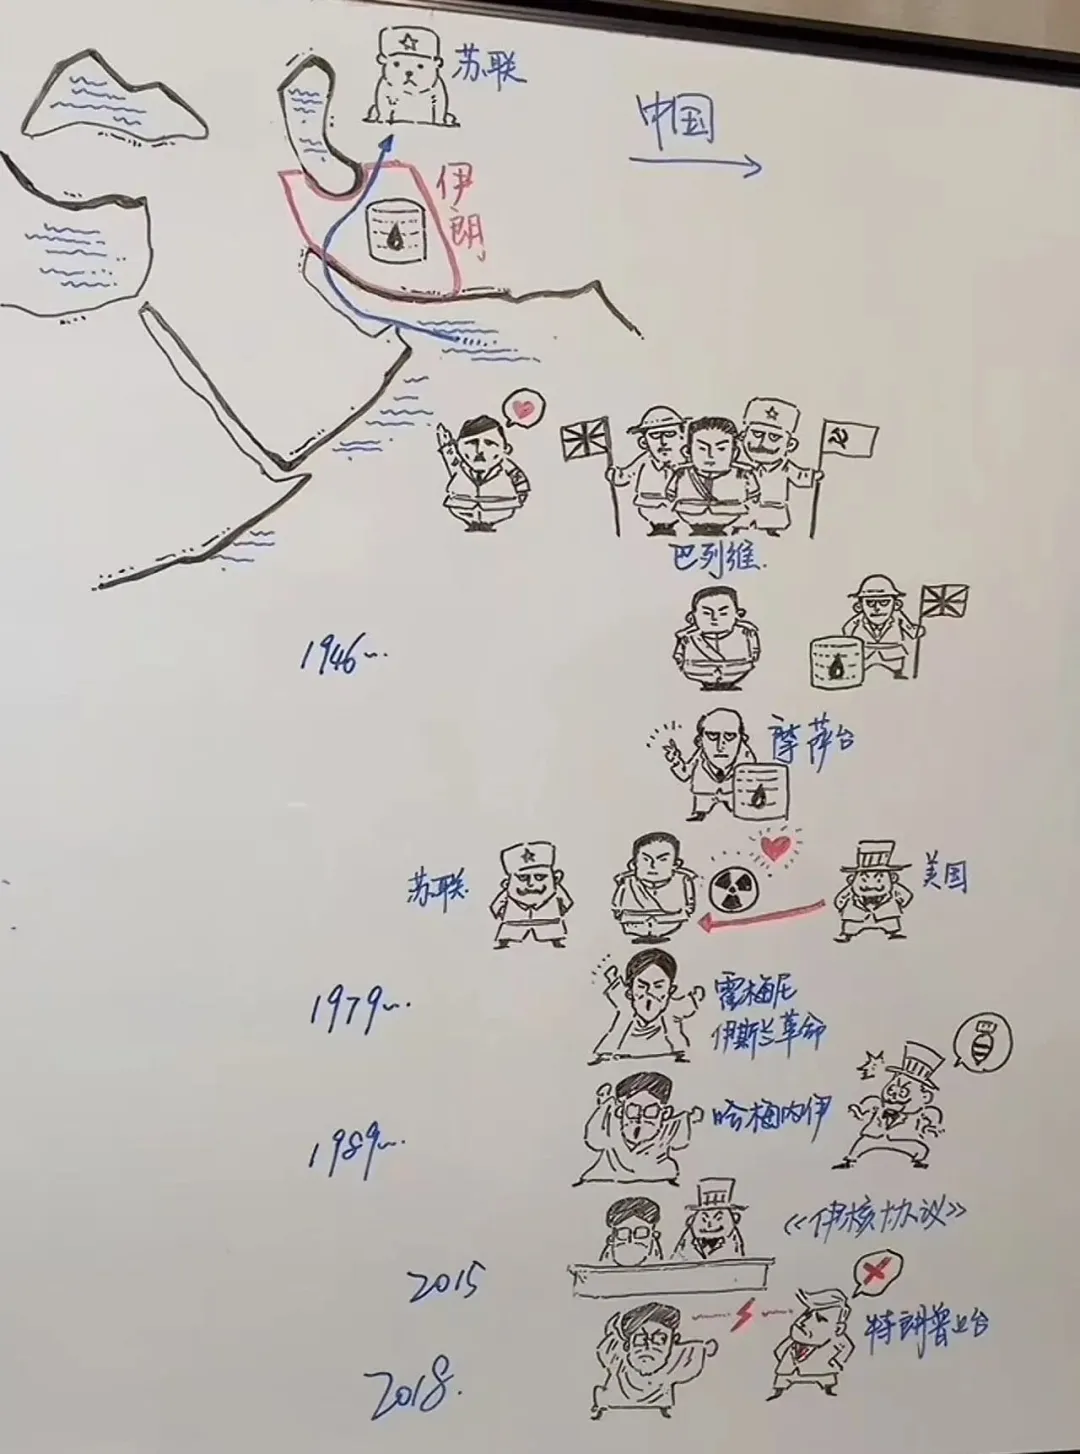 苏联
中国
伊
朗
巴列维.
1946~
摩萨台
苏联
美国
1979~
霍梅尼
伊斯兰革命
1989~
哈梅内伊
《伊核协议》
2015
特朗普上台
2018.